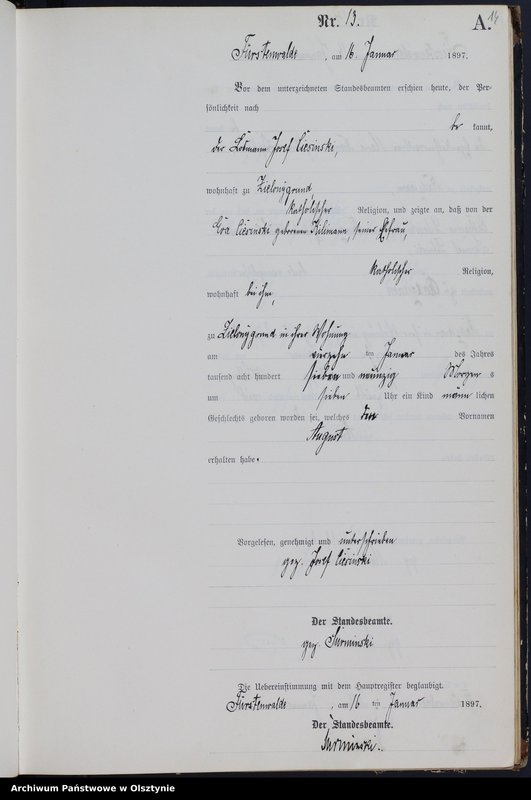 Nr. 13.
A. 14
Fürstenwalde, am 16 Januar 1897.
Vor dem unterzeichneten Standesbeamten erschien heute, der Per-
sönlichkeit nach
be kannt,
der Losmann Josef Ciesinski,
wohnhaft zu Zielonygrund,
katholischer Religion, und zeigte an, daß von der
Eva Ciesinski geborenen Kilimann, seiner Ehefrau,
katholischer Religion,
wohnhaft bei ihm,
zu Zielonygrund in ihrer Wohnung
am vierzehn ten Januar des Jahres
tausend acht hundert sieben und neunzig Morgen s
um sieben Uhr ein Kind männ lichen
Geschlechts geboren worden sei, welches den Vornamen
August
erhalten habe.
Vorgelesen, genehmigt und unterschrieben
gez. Josef Ciesinski
Der Standesbeamte.
gez. Surminski
Die Uebereinstimmung mit dem Hauptregister beglaubigt.
Fürstenwalde, am 16 ten Januar 1897.
Der Standesbeamte.
Surminski.
Archiwum Państwowe w Olsztynie